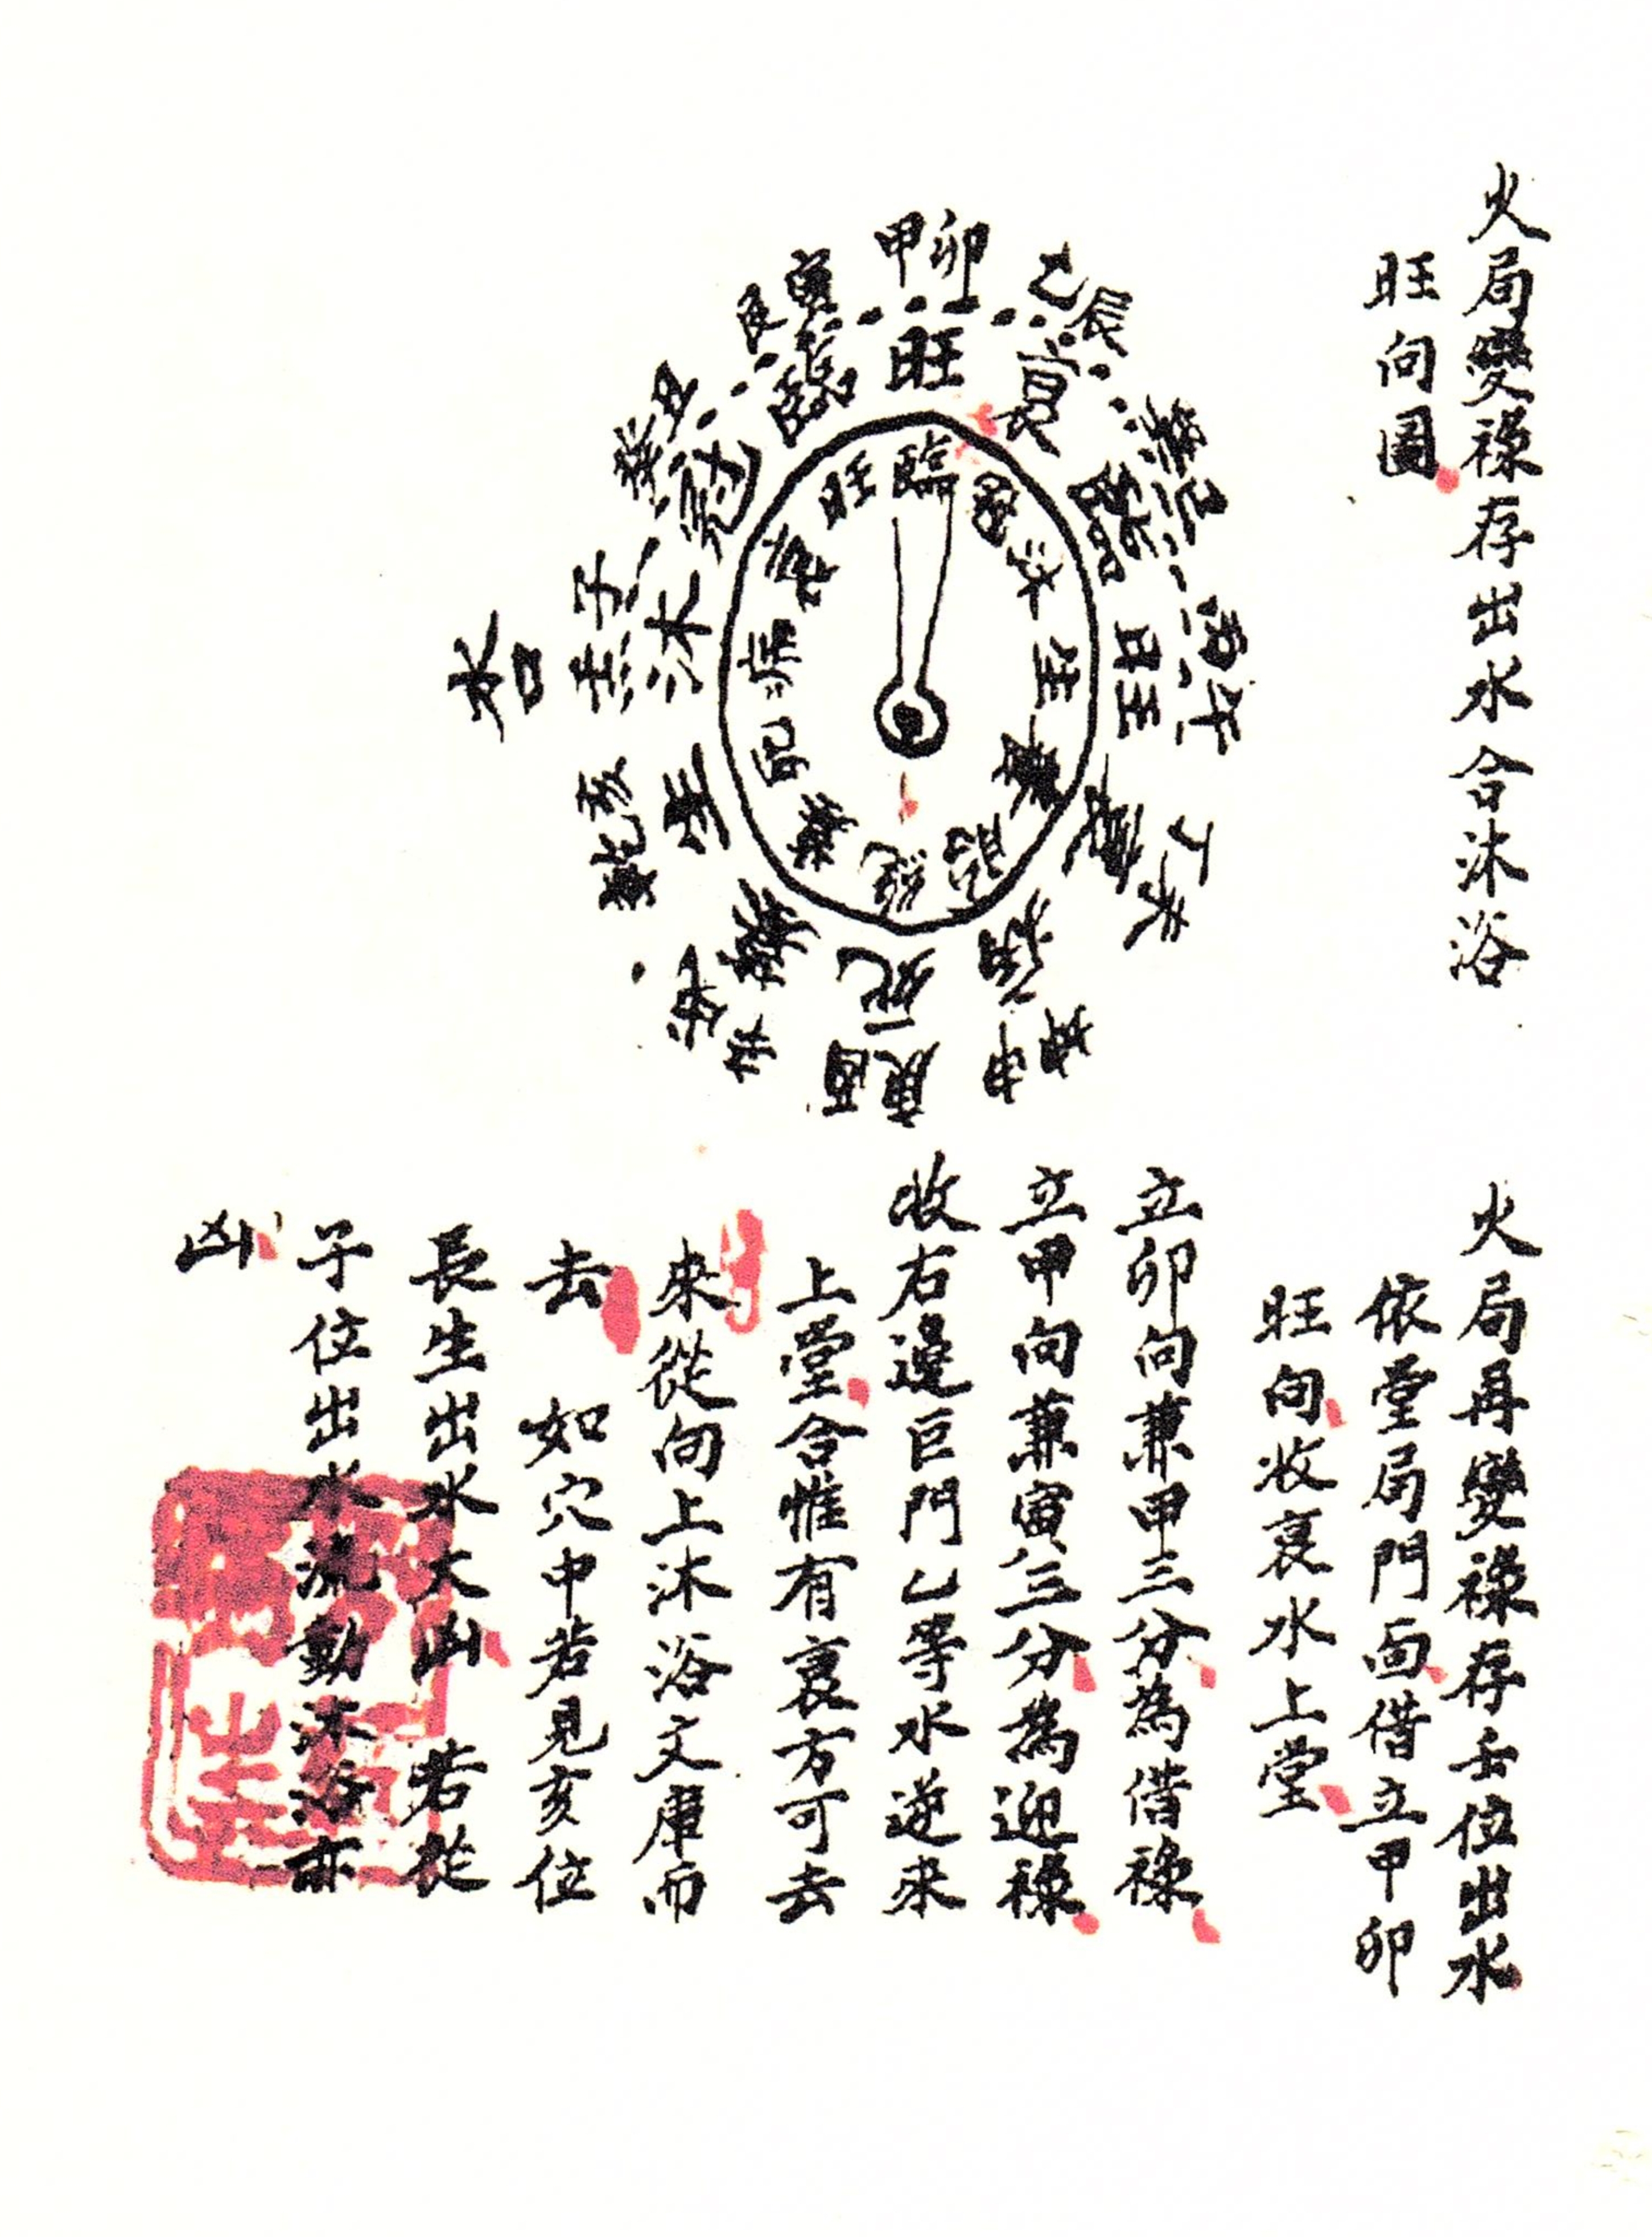 火局變祿存出水合沐浴
旺向圖
甲卯
乙辰
巽巳
丙午
丁未
坤申
庚酉
辛戌
乾亥
壬子
癸丑
艮寅
旺
衰
臨
旺
衰
病
死
墓
生
沐
冠
臨
臨
冠
沐
生
養
胎
絕
墓
死
病
衰
旺
水口
火局再變祿存壬位出水
依堂局門面借立甲卯
旺向收衰水上堂
立卯向兼甲三分為借祿
立甲向兼寅三分為迎祿
收右邊巨門乙等水逆來
上堂合惟有衰方可去
來從向上沐浴文庫而
去 如穴中若見亥位
長生出水大凶 若從
子位出水流動沐浴亦
凶